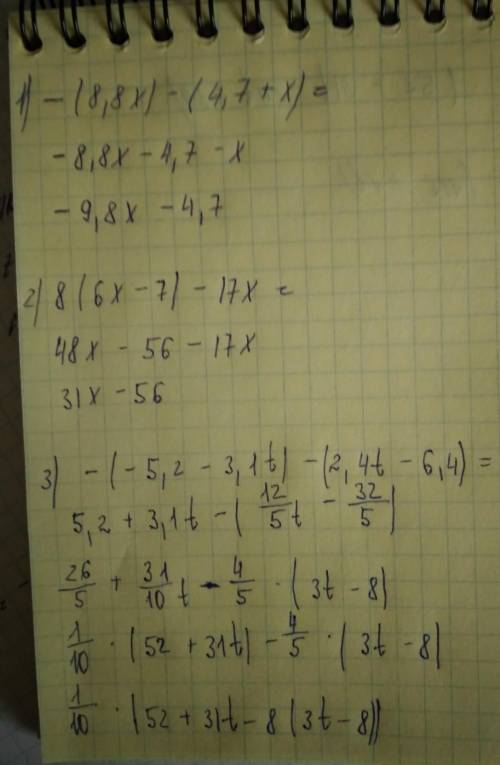 1) - (8,8x) - (4,7 + x) =
- 8,8x - 4,7 - x
- 9,8x - 4,7
2) 8 (6x - 7) - 17x =
48x - 56 - 17x
31x - 56
3) - (- 5,2 - 3,1t) - (2,4t - 6,4) =
5,2 + 3,1t - ( 12/5 t - 32/5 )
26/5 + 31/10 t - 4/5 · (3t - 8)
1/10 · (52 + 31t) - 4/5 · (3t - 8)
1/10 · (52 + 31t - 8 (3t - 8))